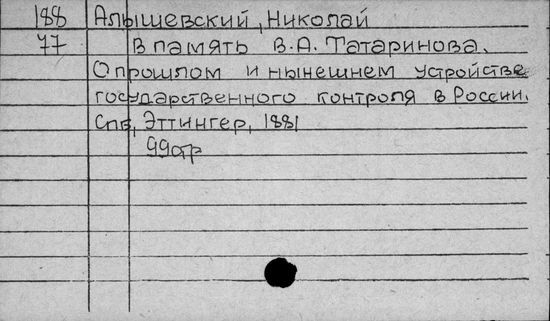 188 Алышевский, Николай
77 В память В.А. Татаринова.
О прошлом и нынешнем устройстве
государственного контроля в России.
Спб, Эттингер, 1881
99стр